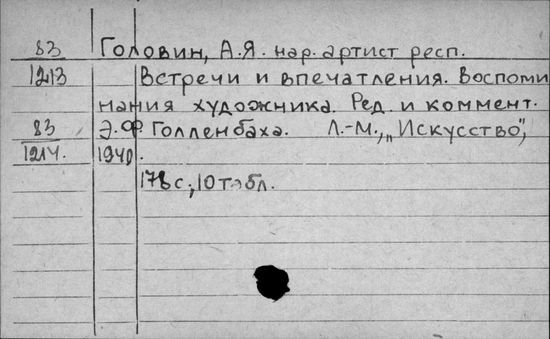 83 Головин, А.Я. нар. артист респ.
1213 Встречи и впечатления. Воспоми
нания художника. Ред. и коммент.
83 Э.Ф Голленбаха. Л.-М., „Искусство",
1214. 1940.
178 с., 10 табл.